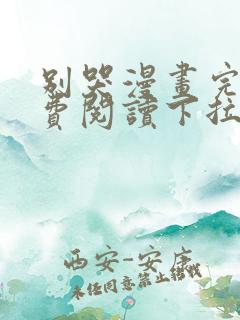 别哭漫畫完
费閱讀下拉
西安-安康
未经同意禁止转载